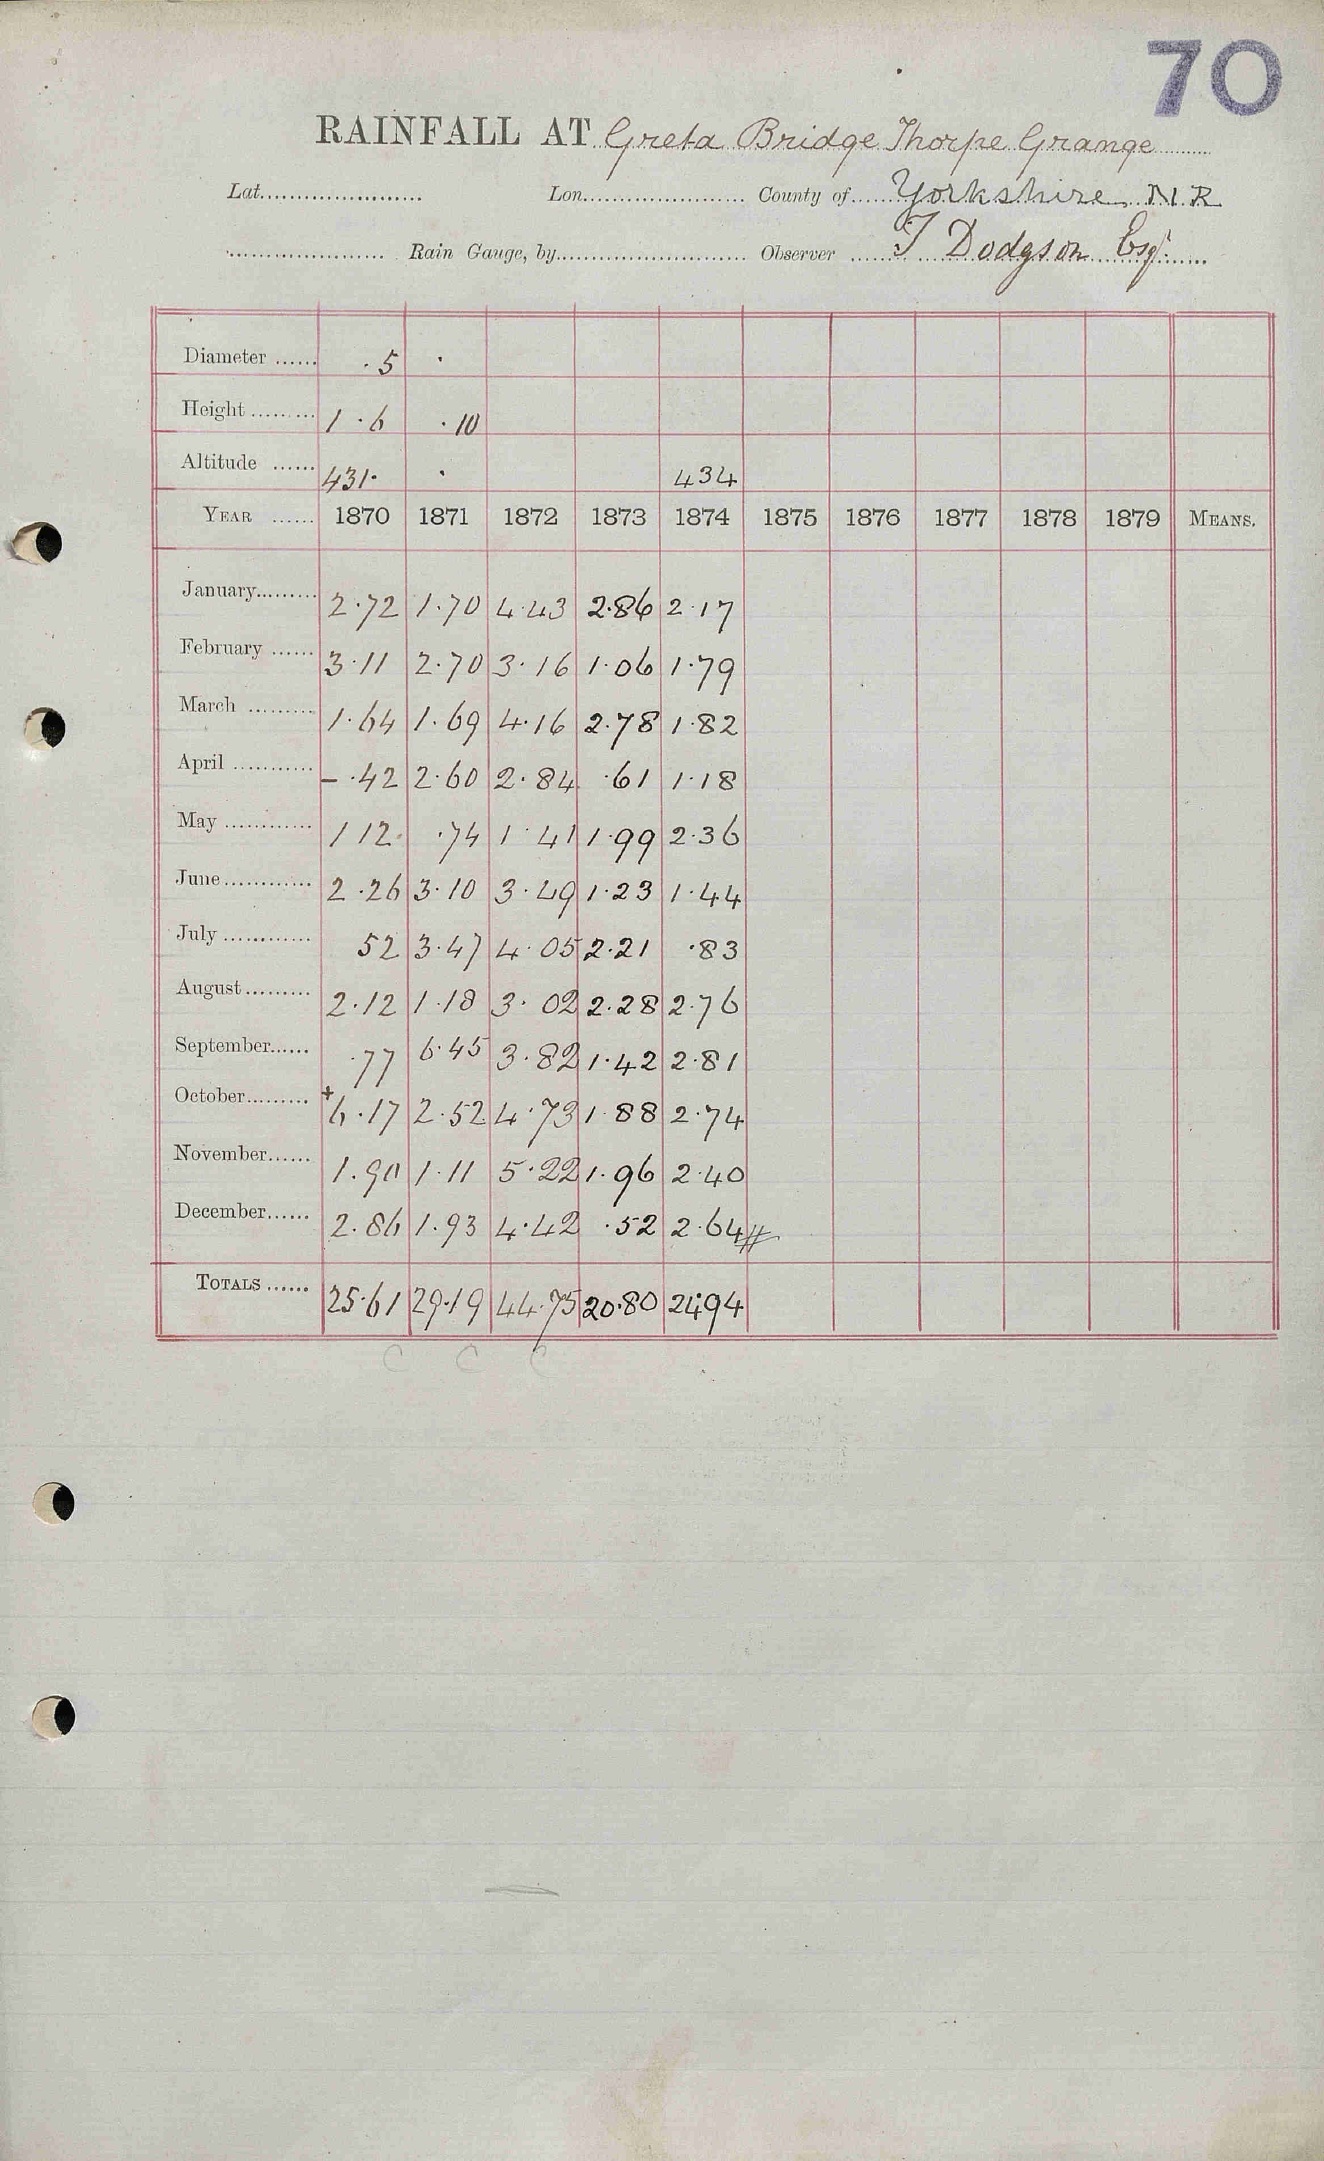 70
RAINFALL AT Greta Bridge Thorpe Grange
Lat...................... Lon...................... County of...... Yorkshire. N.R
...................... Rain Gauge, by.......................... Observer ...... T Dodgson Esqr.
Diameter ...... .5 .
Height ......... 1 .6 .10
Altitude ...... 431. . 434
YEAR ...... 1870 1871 1872 1873 1874 1875 1876 1877 1878 1879 MEANS.
January......... 2.72 1.70 4.43 2.86 2.17
February ...... 3.11 2.70 3.16 1.06 1.79
March ......... 1.64 1.69 4.16 2.78 1.82
April ............ - .42 2.60 2.84 .61 1.18
May ............ 1 12 .74 1.41 1.99 2.36
June............ 2.26 3.10 3.49 1.23 1.44
July ............ 52 3.47 4.05 2.21 .83
August......... 2.12 1.18 3.02 2.28 2.76
September...... .77 6.45 3.82 1.42 2.81
October......... +6.17 2.52 4.73 1.88 2.74
November...... 1.90 1.11 5.22 1.96 2.40
December...... 2.86 1.93 4.42 .52 2.64 #
TOTALS ...... 25.61 29.19 44.75 20.80 24.94
C C C